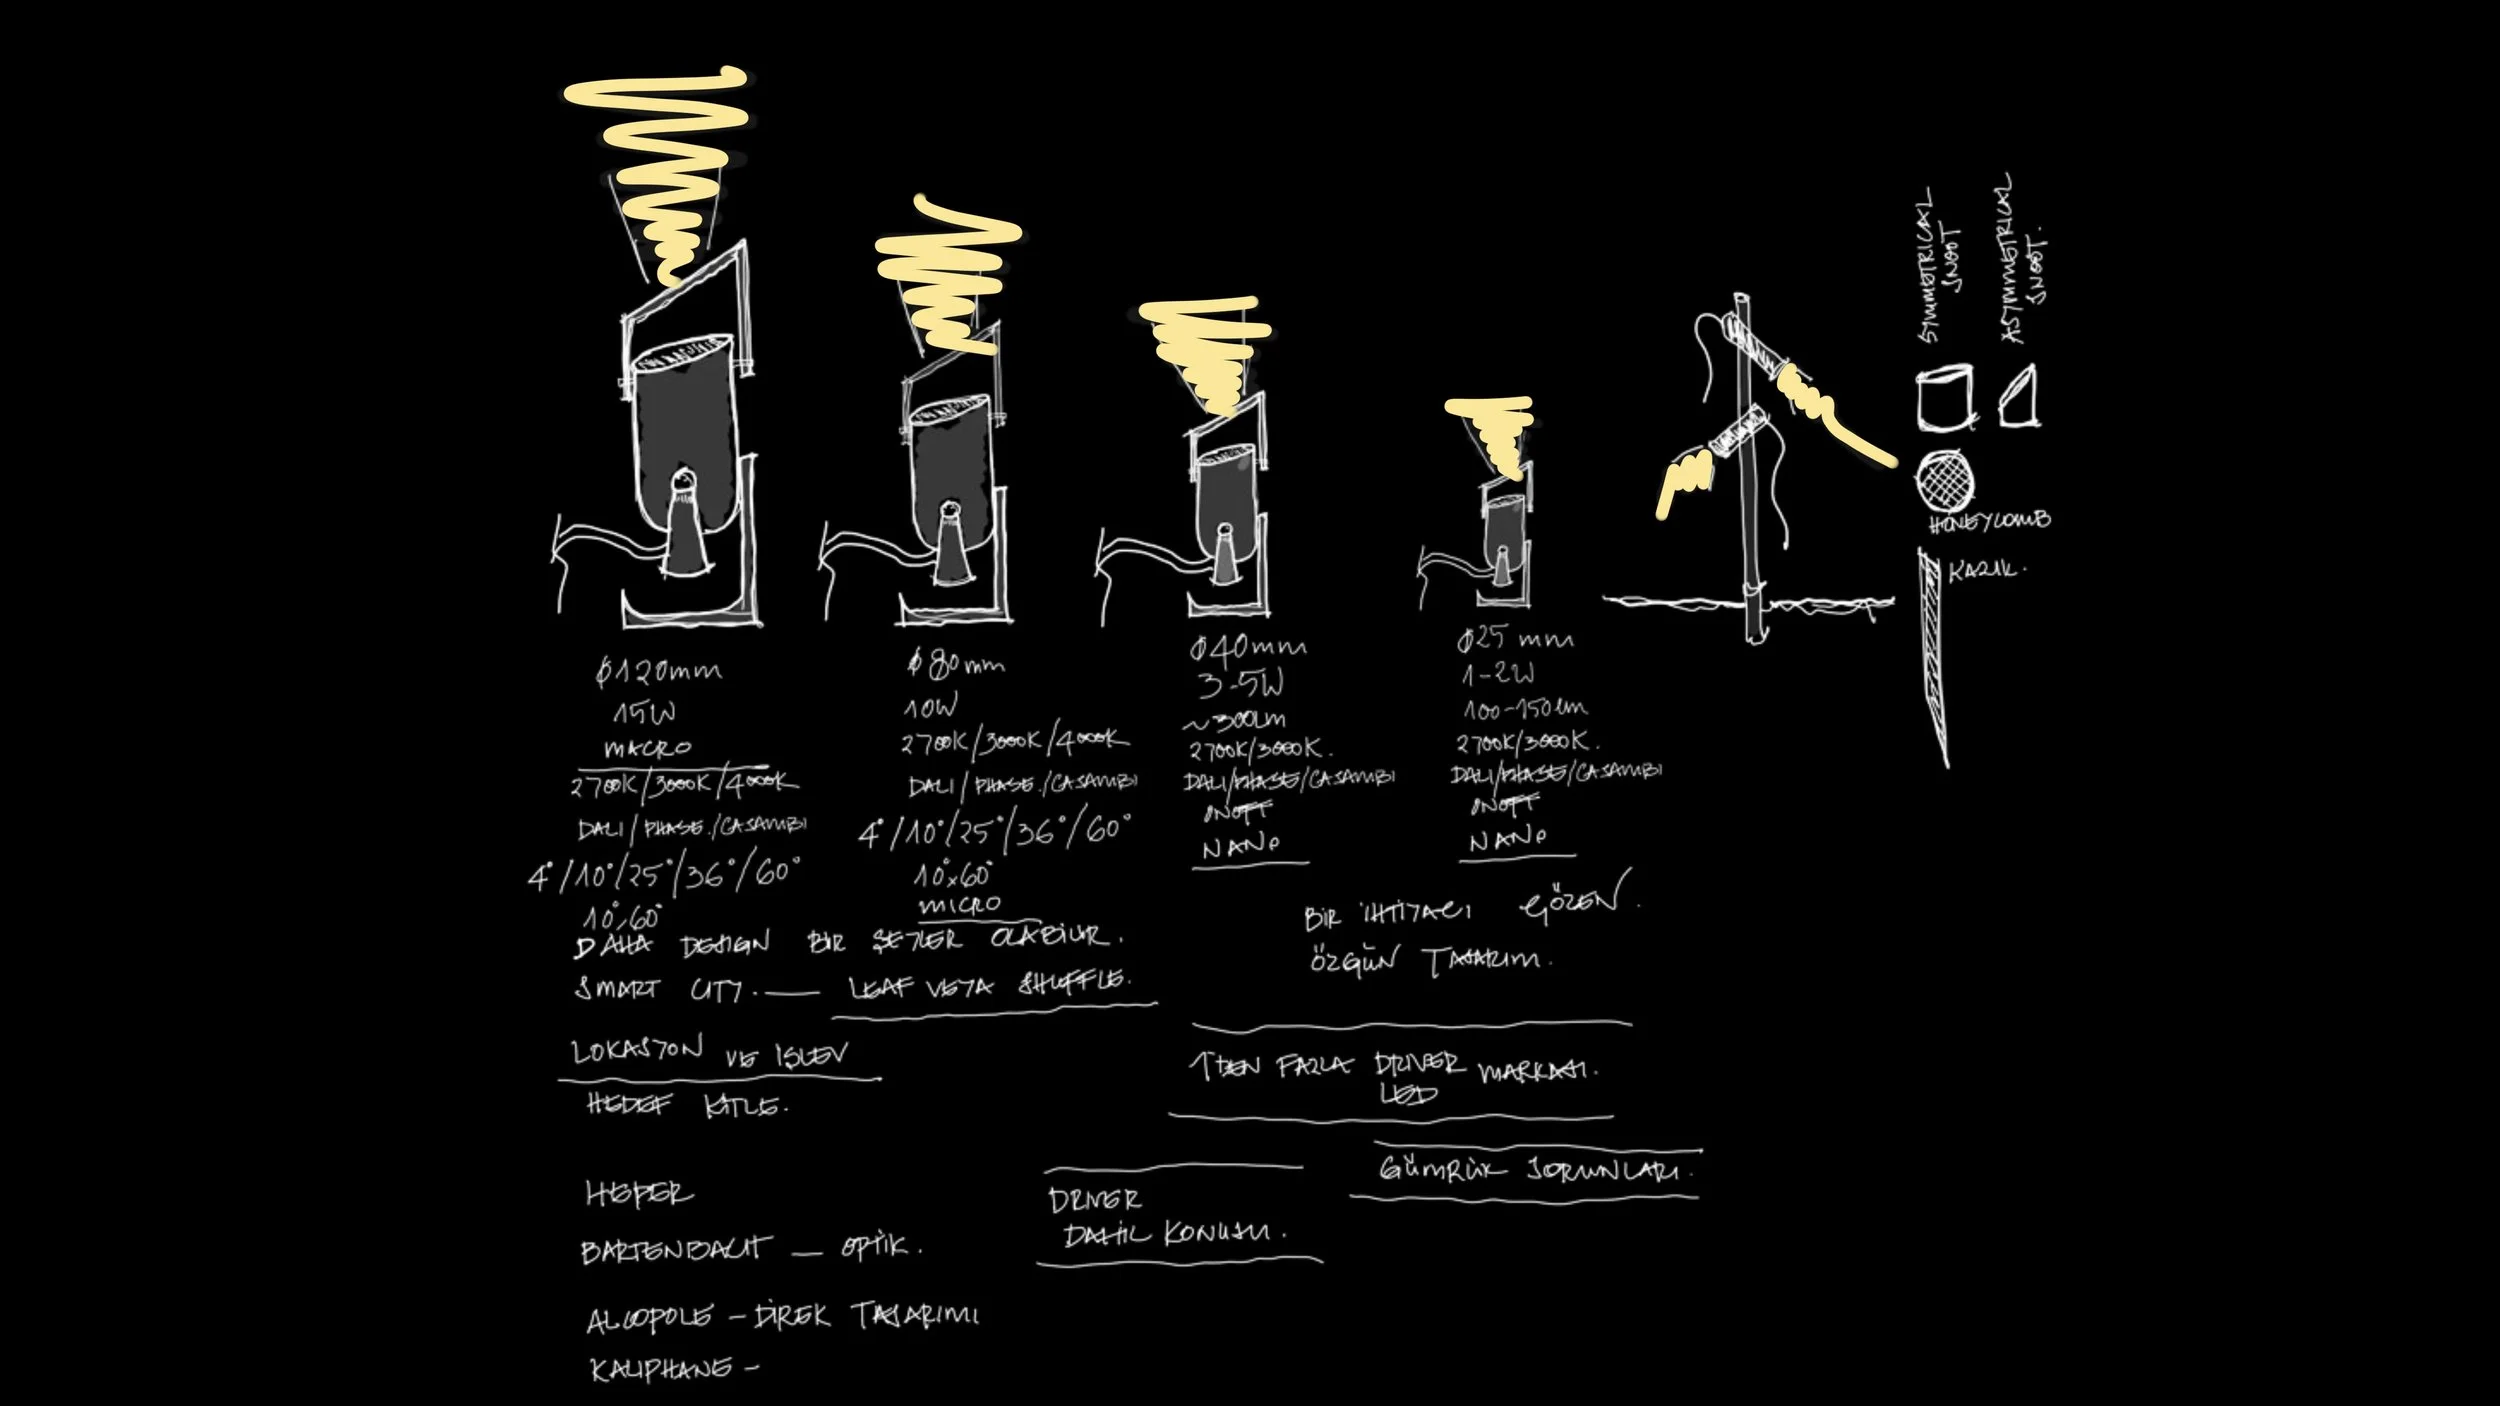 Ø120mm
15W
MACRO
2700K/3000K/4000K
DALI/PHASE./CASAMBI
4°/10°/25°/36°/60°
10°x60°
Ø80mm
10W
2700K/3000K/4000K
DALI/PHASE./CASAMBI
4°/10°/25°/36°/60°
10°x60°
MICRO
Ø40mm
3-5W
~300LM
2700K/3000K.
DALI/PHASE/CASAMBI
ONOFF
NANO
Ø25 mm
1-2W
100-150LM
2700K/3000K.
DALI/PHASE/CASAMBI
ONOFF
NANO
SYMMETRICAL
SNOOT
ASYMMETRICAL
SNOOT.
HONEYCOMB
KAZIK.
DAHA DESIGN BİR ŞEYLER OLABİLİR.
SMART CITY. — LEAF VEYA SHUFFLE.
LOKASYON VE İŞLEV
HEDEF KİTLE.
BİR İHTİYACI ÇÖZEN.
ÖZGÜN TASARIM.
1'DEN FAZLA DRIVER MARKASI.
LED
GÜMRÜK SORUNLARI.
DRIVER
DAHİL KONUSU.
HEPER
BARTENBACH — OPTİK.
ALUOPOLE - DİREK TASARIMI
KALIPHANE -